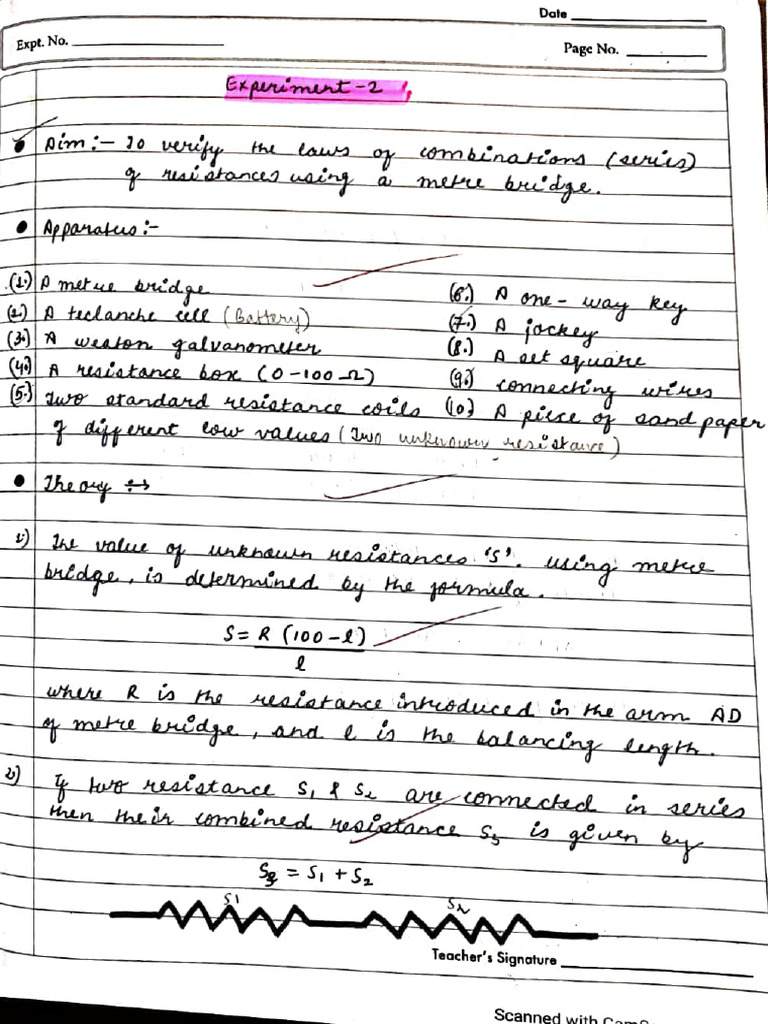 Date
Expt. No.
Page No.
Experiment - 2
Aim :- To verify the laws of combinations (series)
of resistances using a metre bridge.
Apparatus :-
(1.) A metre bridge
(2.) A leclanche cell (Battery)
(3.) A weston galvanometer
(4.) A resistance box (0-100 Ω)
(5.) Two standard resistance coils
of different low values (Two unknown resistance)
(6.) A one-way key
(7.) A jockey
(8.) A set square
(9.) connecting wires
(10.) A piece of sand paper
Theory
1) The value of unknown resistances 'S'. using metre
bridge, is determined by the formula.
S = R (100 - l)
l
where R is the resistance introduced in the arm AD
of metre bridge, and l is the balancing length.
2) If two resistance S1 & S2 are connected in series
then their combined resistance Ss is given by
Ss = S1 + S2
S1 S2
Teacher's Signature
Scanned with